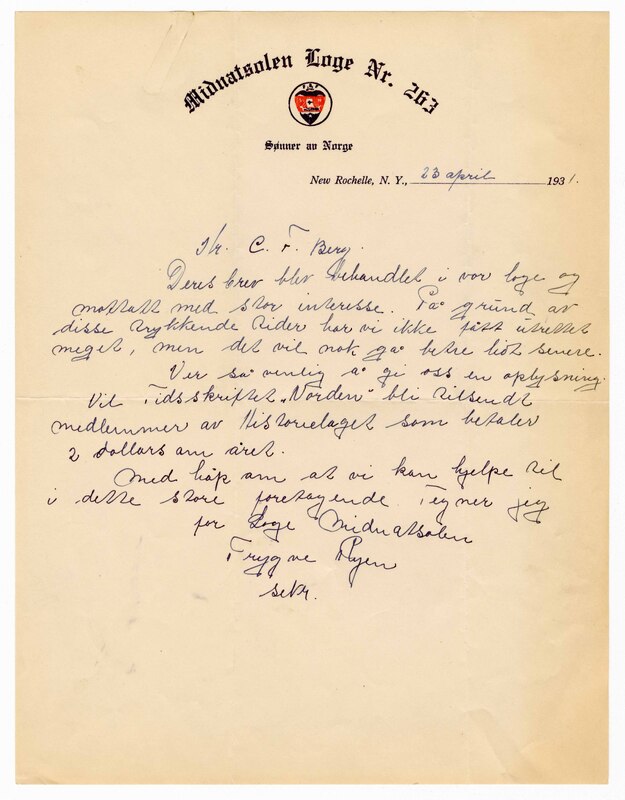 Midnatsolen Loge Nr. 263
Sønner av Norge
New Rochelle, N. Y., 23 april 1931.
Hr. C. F. Berg.
Deres brev blev behandlet i vor loge og
mottatt med stor interesse. På grund av
disse trykkende tider har vi ikke fått utrettet
meget, men det vil nok gå betre litt senere.
Ver så venlig å gi oss en oplysning.
Vil Tidsskriftet „Norden" bli tilsendt
medlemmer av Historielaget som betaler
2 dollars om året.
Med håp om at vi kan hjelpe til
i dette store foretagende. Tegner jeg
for Loge Midnatsolen
Trygve Ryen
sekr.